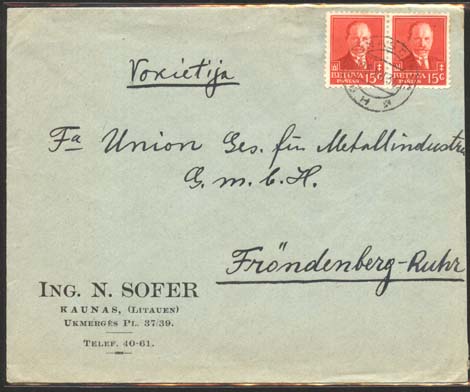 Vokietija
LIETUVA 15 C
PAŠTAS
LIETUVA 15 C
PAŠTAS
Fa Union Ges. für Metallindustrie
G.m.b.H.
Fröndenberg-Ruhr
ING. N. SOFER
KAUNAS, (LITAUEN)
UKMERGĖS PL. 37/39.
TELEF. 40-61.